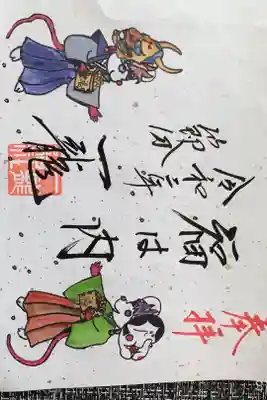 奉拝
福は内
令和二年
節分
一龍